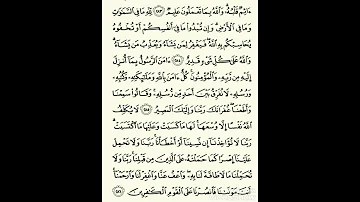 ءَاثِمٌ قَلْبُهُۥ ۗ وَٱللَّهُ بِمَا تَعْمَلُونَ عَلِيمٌ ﴿٢٨٣﴾ لِّلَّهِ مَا فِى ٱلسَّمَـٰوَٰتِ
وَمَا فِى ٱلْأَرْضِ ۗ وَإِن تُبْدُوا۟ مَا فِىٓ أَنفُسِكُمْ أَوْ تُخْفُوهُ
يُحَاسِبْكُم بِهِ ٱللَّهُ ۖ فَيَغْفِرُ لِمَن يَشَآءُ وَيُعَذِّبُ مَن يَشَآءُ ۗ
وَٱللَّهُ عَلَىٰ كُلِّ شَىْءٍ قَدِيرٌ ﴿٢٨٤﴾ ءَامَنَ ٱلرَّسُولُ بِمَآ أُنزِلَ
إِلَيْهِ مِن رَّبِّهِۦ وَٱلْمُؤْمِنُونَ ۚ كُلٌّ ءَامَنَ بِٱللَّهِ وَمَلَـٰٓئِكَتِهِۦ وَكُتُبِهِۦ
وَرُسُلِهِۦ لَا نُفَرِّقُ بَيْنَ أَحَدٍ مِّن رُّسُلِهِۦ ۚ وَقَالُوا۟ سَمِعْنَا
وَأَطَعْنَا ۖ غُفْرَانَكَ رَبَّنَا وَإِلَيْكَ ٱلْمَصِيرُ ﴿٢٨٥﴾ لَا يُكَلِّفُ
ٱللَّهُ نَفْسًا إِلَّا وُسْعَهَا ۚ لَهَا مَا كَسَبَتْ وَعَلَيْهَا مَا ٱكْتَسَبَتْ ۗ
رَبَّنَا لَا تُؤَاخِذْنَآ إِن نَّسِينَآ أَوْ أَخْطَأْنَا ۚ رَبَّنَا وَلَا تَحْمِلْ
عَلَيْنَآ إِصْرًا كَمَا حَمَلْتَهُۥ عَلَى ٱلَّذِينَ مِن قَبْلِنَا ۚ رَبَّنَا وَلَا
تُحَمِّلْنَا مَا لَا طَاقَةَ لَنَا بِهِۦ ۖ وَٱعْفُ عَنَّا وَٱغْفِرْ لَنَا وَٱرْحَمْنَآ ۚ
أَنتَ مَوْلَىٰنَا فَٱنصُرْنَا عَلَى ٱلْقَوْمِ ٱلْكَـٰفِرِينَ ﴿٢٨٦﴾